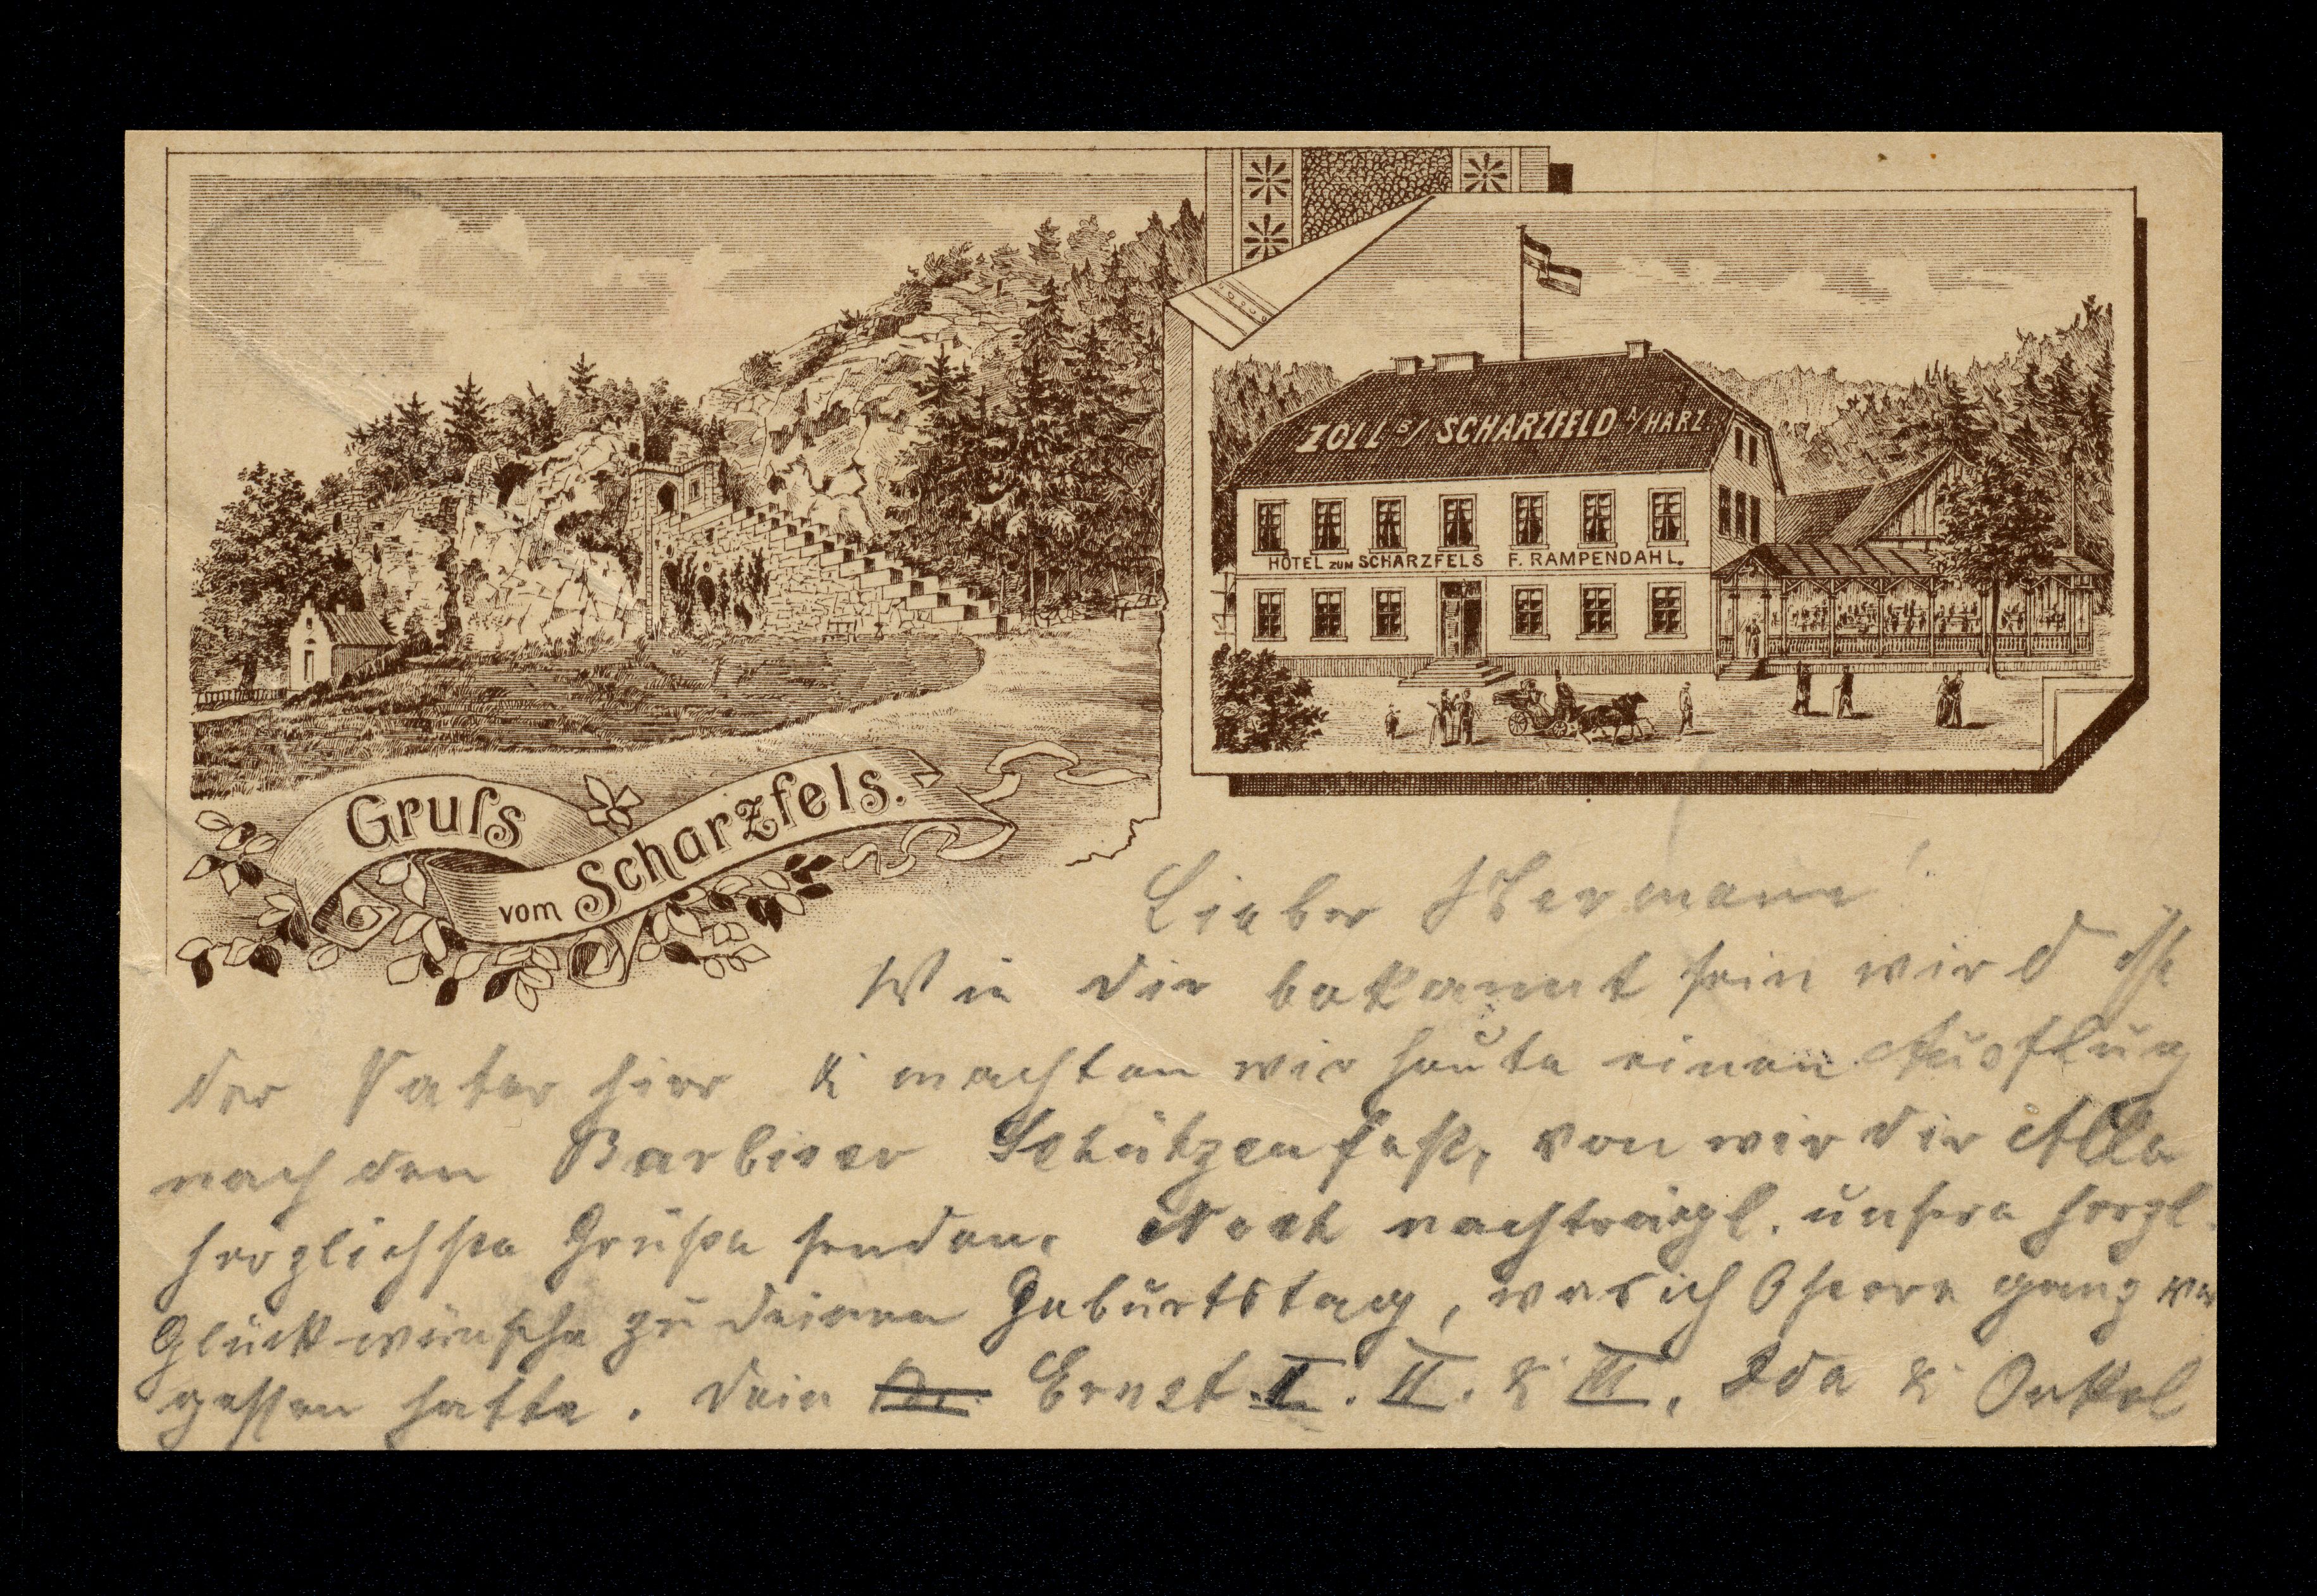 ZOLL B/ SCHARZFELD A/HARZ.
HOTEL ZUM SCHARZFELS F. RAMPENDAHL.
Gruſs
vom Scharzfels.
Lieber Hermann!
Wie dir bekannt sein wird ist
der Vater hier & machten wir heute einen Ausflug
nach den Barbiser Schützenfest, von wir dir Alle
herzlichsten Grüße senden. Noch nachträgl. unsere herzl.
Glückwünsche zu deinem Geburtstag, was ich ganz ver
gessen hatte. Dein Ernst I. II. & III, Ida & Onkel